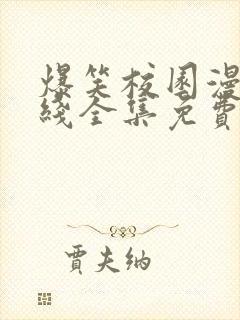 爆笑校園漫
綫全集免費
賈夫納